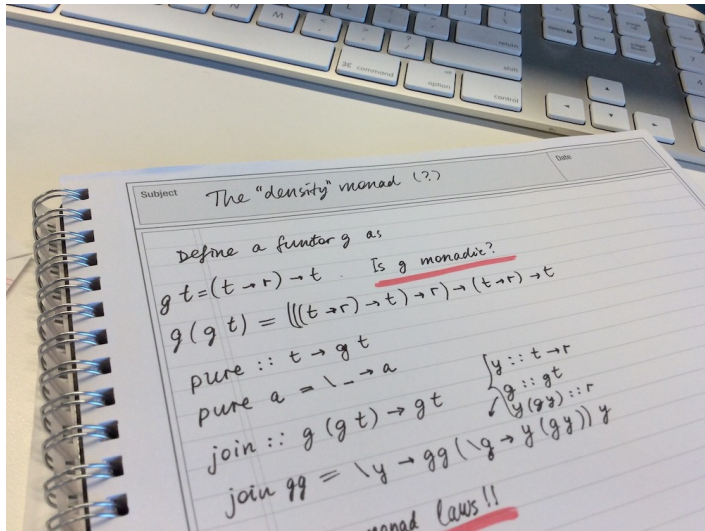 ⌘ command
option
control
return
shift
Subject
The "density" monad (?)
Date
Define a functor g as
g t = (t → r) → t . Is g monadic?
g (g t) = (((t → r) → t) → r) → (t → r) → t
pure :: t → g t
pure a = \_ → a
join :: g (g t) → g t
y :: t → r
g :: g t
y (g y) :: r
join gg = \y → gg (\g → y (g y)) y
monad laws!!